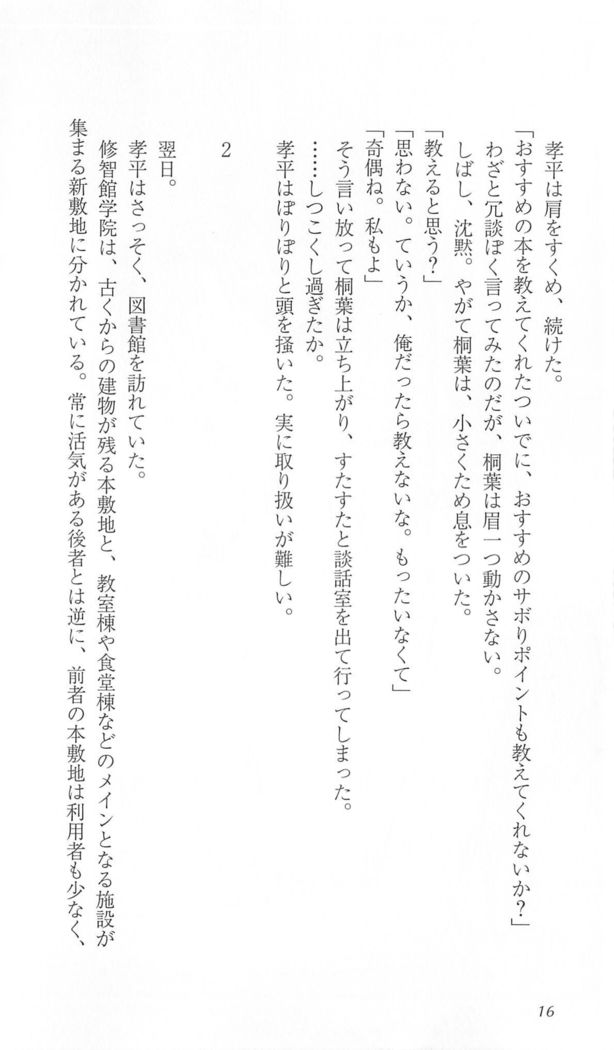 孝平は肩をすくめ、続けた。
「おすすめの本を教えてくれたついでに、おすすめのサボりポイントも教えてくれないか？」
わざと冗談ぽく言ってみたのだが、桐葉は眉一つ動かさない。
しばし、沈黙。やがて桐葉は、小さくため息をついた。
「教えると思う？」
「思わない。ていうか、俺だったら教えないな。もったいなくて」
「奇偶ね。私もよ」
そう言い放って桐葉は立ち上がり、すたすたと談話室を出て行ってしまった。
……しつこくし過ぎたか。
孝平はぽりぽりと頭を掻いた。実に取り扱いが難しい。
2
翌日。
孝平はさっそく、図書館を訪れていた。
修智館学院は、古くからの建物が残る本敷地と、教室棟や食堂棟などのメインとなる施設が
集まる新敷地に分かれている。常に活気がある後者とは逆に、前者の本敷地は利用者も少なく、
16